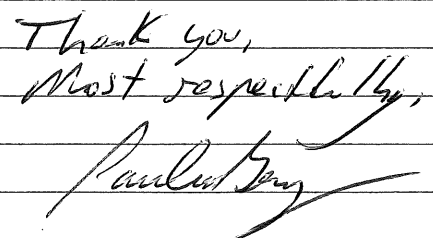 Thank you,
Most respectfully,